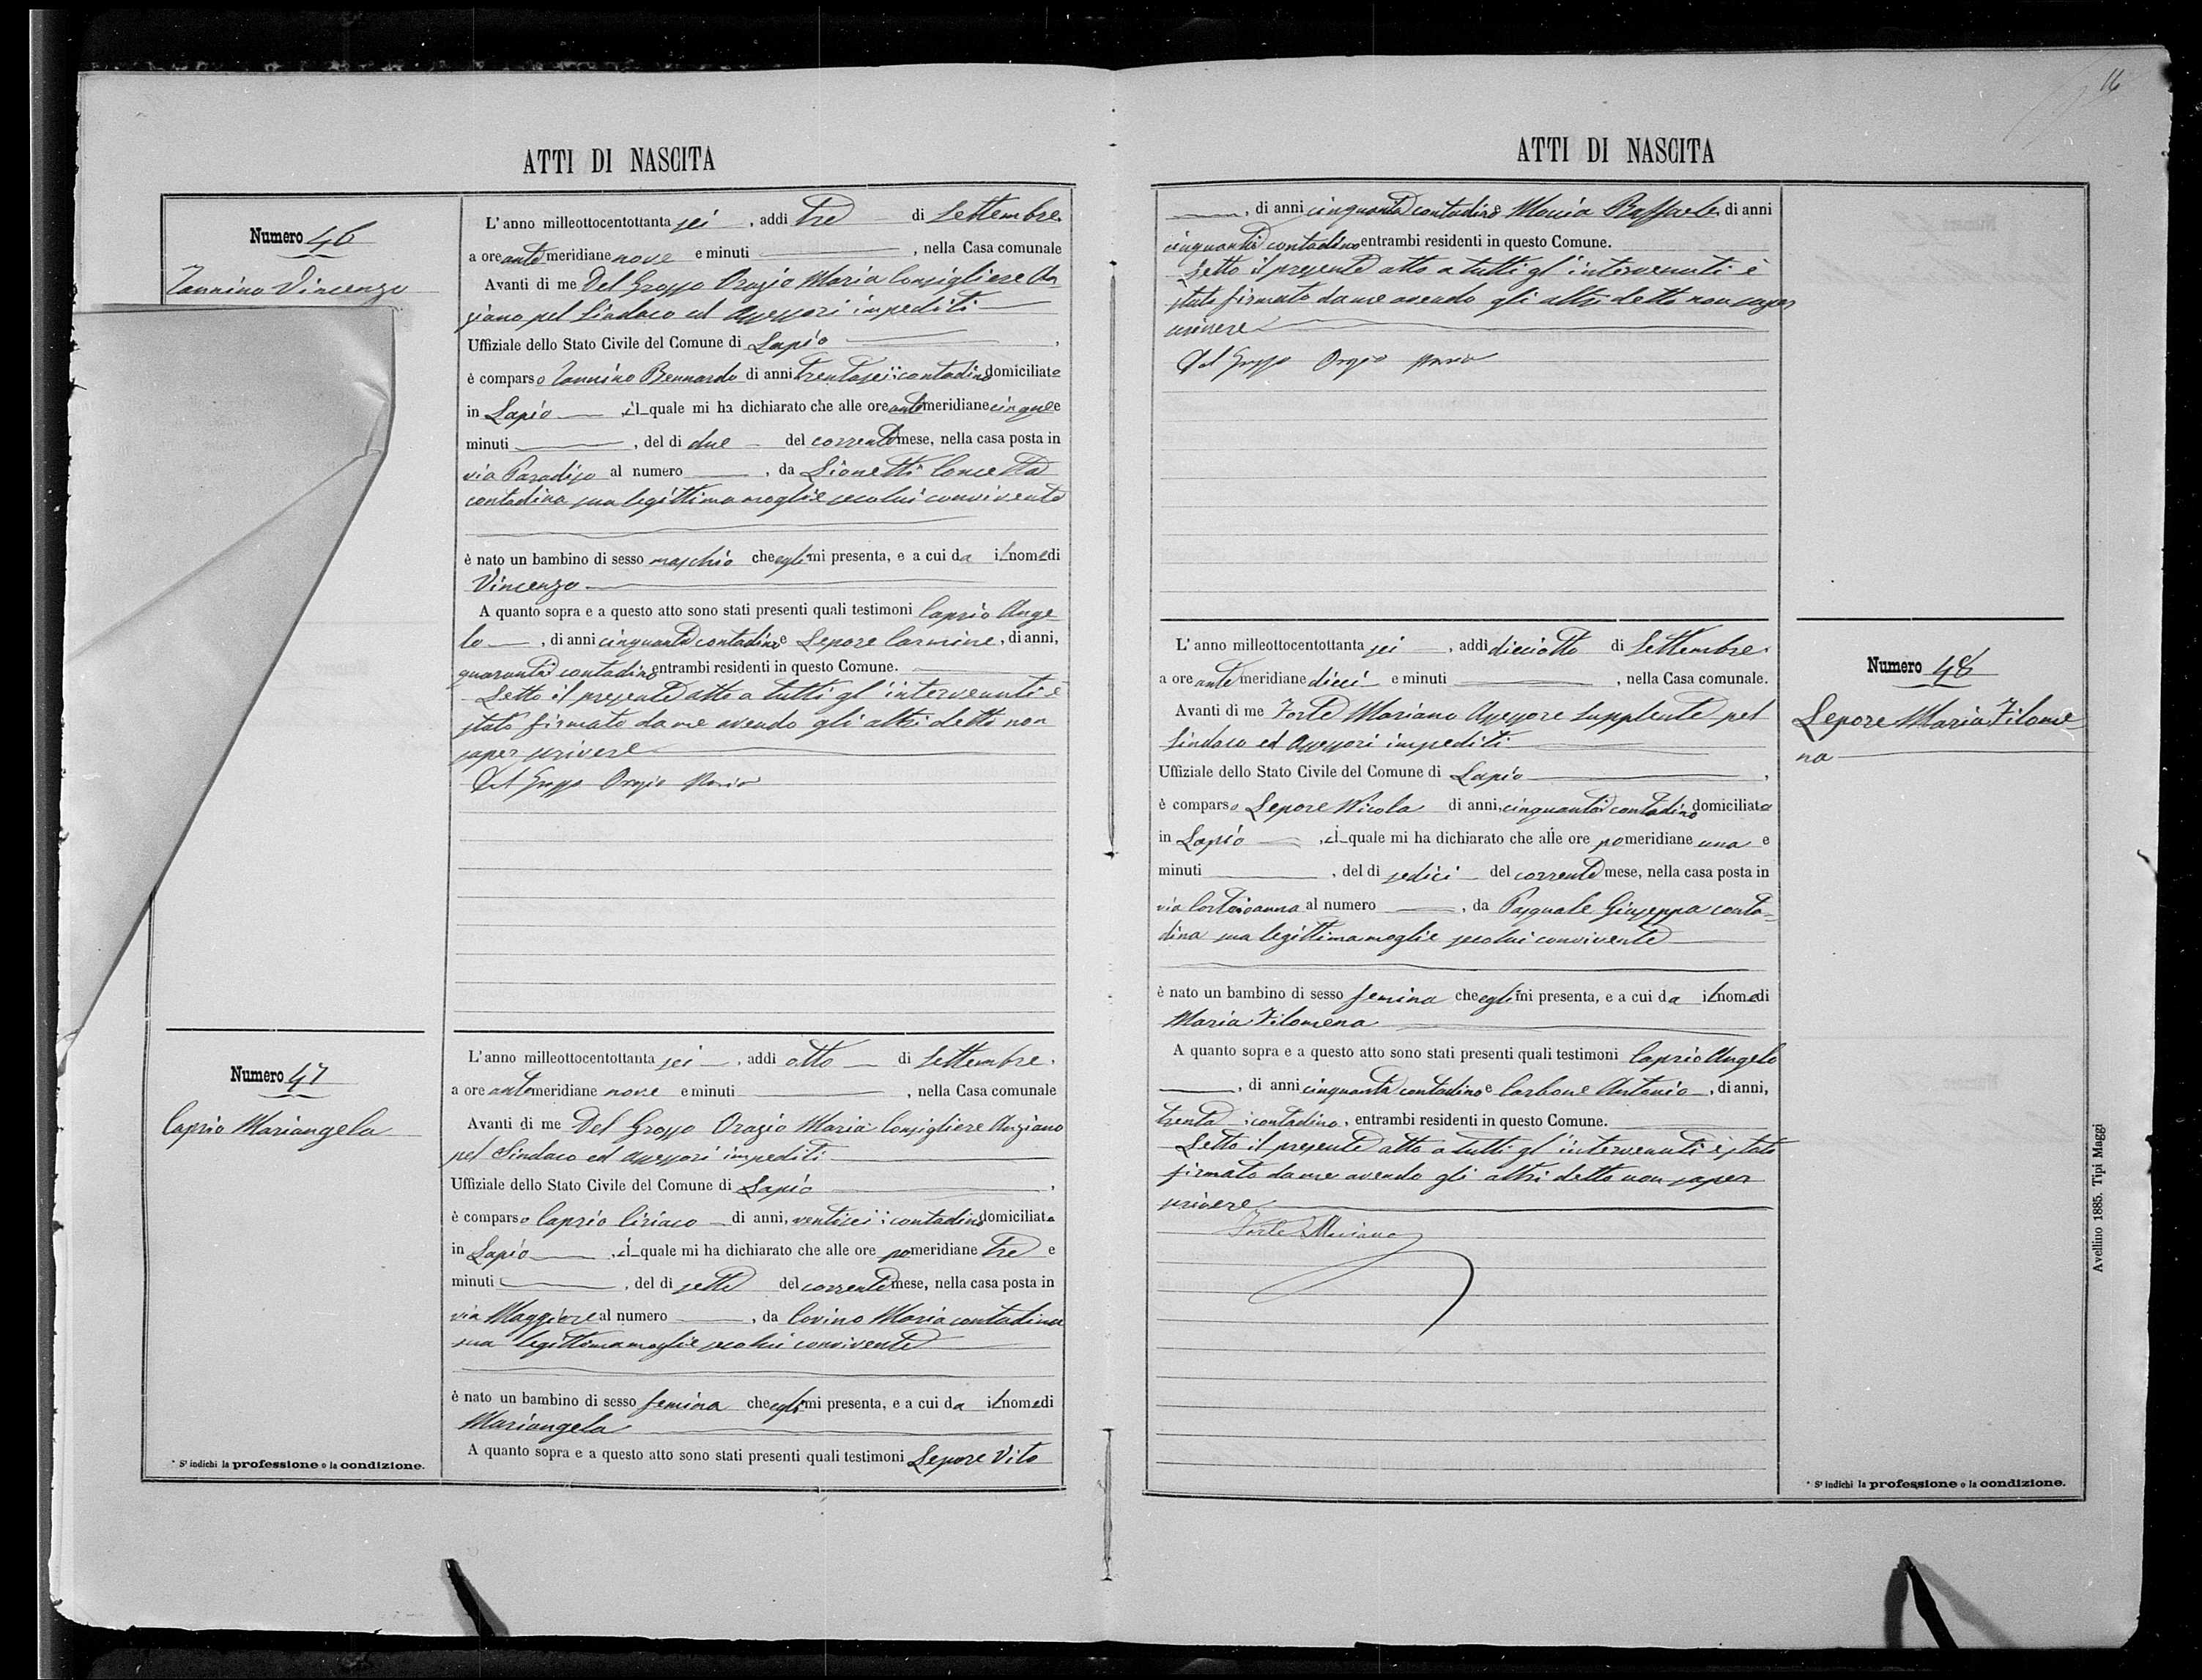 16
ATTI DI NASCITA
Numero 46
Iannino Vincenzo
L'anno milleottocentottanta sei, addi tre di Settembre
a ore ante meridiane nove e minuti , nella Casa comunale
Avanti di me Del Grosso Orazio Maria Consigliere An
ziano pel Sindaco ed Assessori impediti
Uffiziale dello Stato Civile del Comune di Lapio ,
è comparso Iannino Bennardo di anni trentasei contadino domiciliato
in Lapio , il quale mi ha dichiarato che alle ore antemeridiane cinque e
minuti , del di due del corrente mese, nella casa posta in
via Paradiso al numero , da Lionetti Concetta
contadina sua legittima moglie secolui convivente
è nato un bambino di sesso maschio che egli mi presenta, e a cui da il nome di
Vincenzo
A quanto sopra e a questo atto sono stati presenti quali testimoni Caprio Ange
lo , di anni cinquanta contadino e Lepore Carmine, di anni,
quaranta contadino entrambi residenti in questo Comune.
Letto il presente atto a tutti gl'intervenuti è
stato firmato da me avendo gli altri detto non
saper scrivere
Del Grosso Orazio Maria
Numero 47
Caprio Mariangela
L'anno milleottocentottanta sei , addi otto di Settembre
a ore antemeridiane nove e minuti , nella Casa comunale
Avanti di me Del Grosso Orazio Maria Consigliere Anziano
pel Sindaco ed Assessori impediti
Uffiziale dello Stato Civile del Comune di Lapio ,
è comparso Caprio Ciriaco di anni, ventisei contadino domiciliato
in Lapio , il quale mi ha dichiarato che alle ore pomeridiane tre e
minuti , del di sette del corrente mese, nella casa posta in
via Maggiore al numero , da Covino Maria contadina
sua legittima moglie secolui convivente
è nato un bambino di sesso femina che egli mi presenta, e a cui da il nome di
Mariangela
A quanto sopra e a questo atto sono stati presenti quali testimoni Lepore Vito
* S' indichi la professione o la condizione.
ATTI DI NASCITA
, di anni cinquanta contadino e Raffaele di anni
cinquanta contadino entrambi residenti in questo Comune.
Letto il presente atto a tutti gl'intervenuti è
stato firmato da me avendo gli altri detto non saper
scrivere
Del Grosso Orazio Maria
Numero 48
Lepore Maria Filome
na
L'anno milleottocentottanta sei , addi dieciotto di Settembre
a ore ante meridiane dieci e minuti , nella Casa comunale.
Avanti di me Forte Mariano Assessore Supplente pel
Sindaco ed Assessori impediti
Uffiziale dello Stato Civile del Comune di Lapio ,
è comparso Lepore Nicola di anni, cinquanta contadino domiciliato
in Lapio , il quale mi ha dichiarato che alle ore pomeridiane una e
minuti , del di sedici del corrente mese, nella casa posta in
via al numero , da Pasquale Giuseppa conta-
dina sua legittima moglie secolui convivente
è nato un bambino di sesso femina che egli mi presenta, e a cui da il nome di
Maria Filomena
A quanto sopra e a questo atto sono stati presenti quali testimoni Caprio Angelo
, di anni cinquanta contadino e Carbone Antonio , di anni,
trenta contadino, entrambi residenti in questo Comune.
Letto il presente atto a tutti gl'intervenuti è stato
firmato da me avendo gli altri detto non saper
scrivere
Forte Mariano
* S' indichi la professione o la condizione.
Avellino 1885. Tipi Maggi